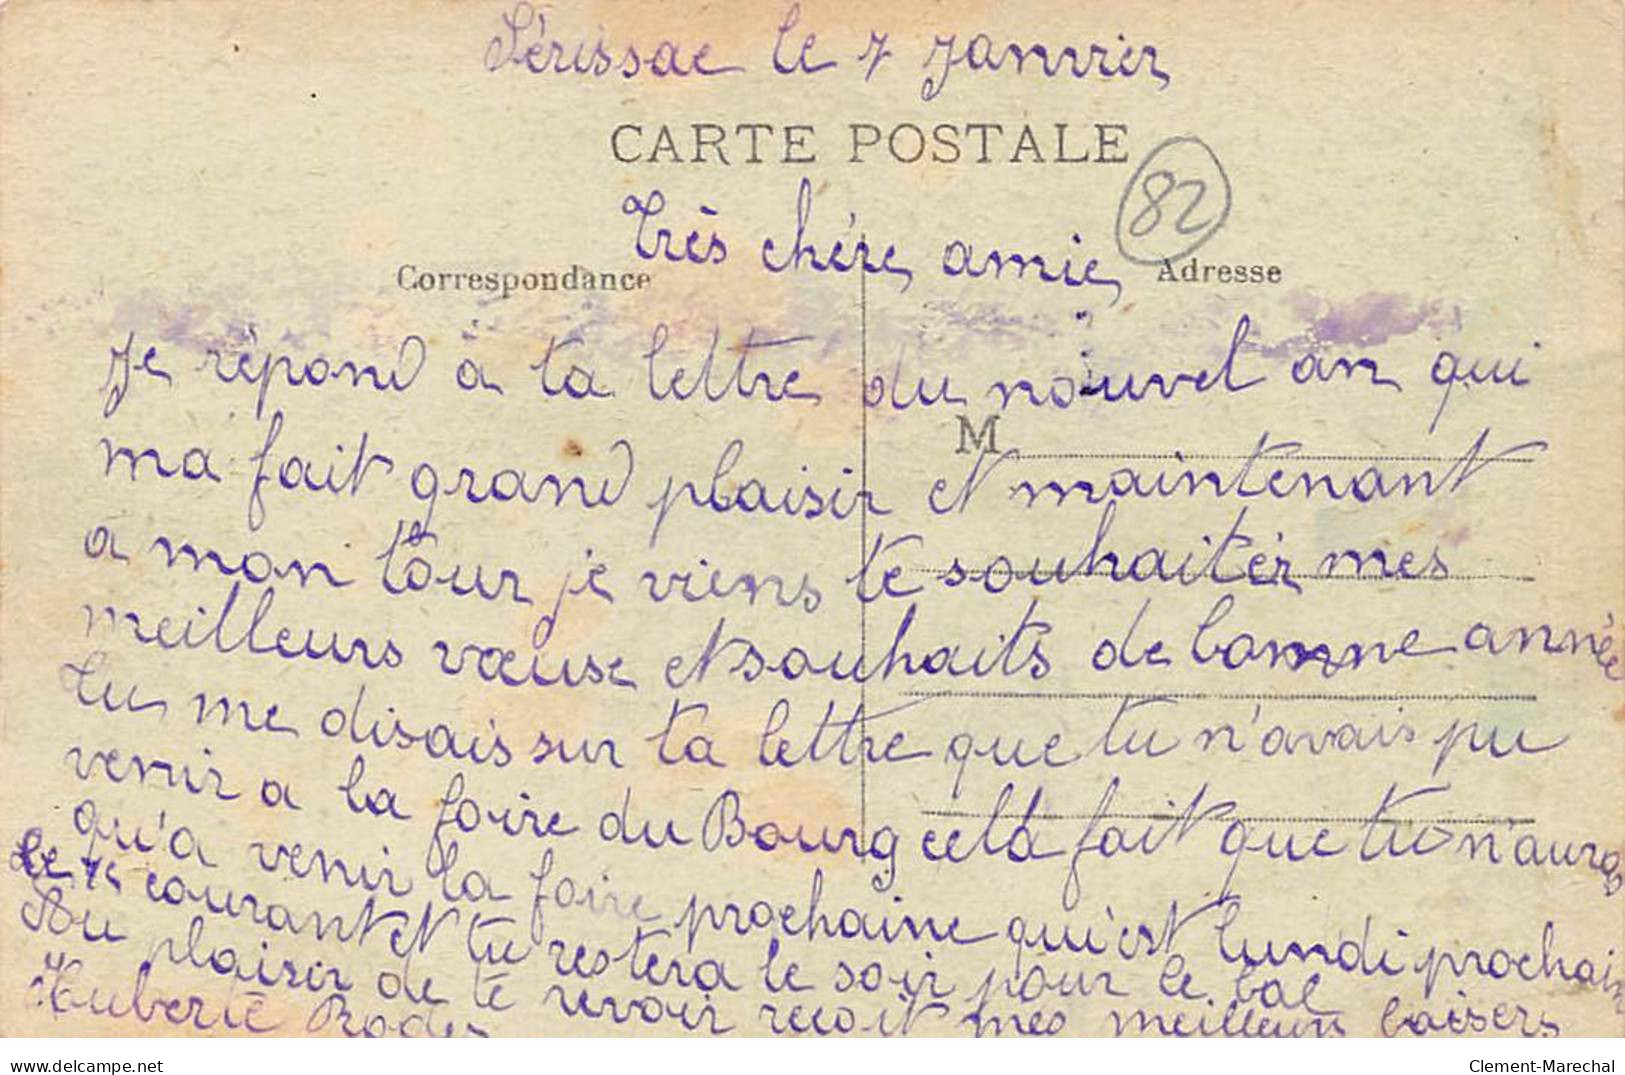 Sérissac le 7 Janvier
CARTE POSTALE
82
Très chère amie
Correspondance
Adresse
Je répond à ta lettre du nouvel an qui
M
ma fait grand plaisir et maintenant
a mon tour je viens te souhaiter mes
meilleurs vœuse et souhaits de bonne année
Tu me disais sur ta lettre que tu n'avais pu
venir a la foire du Bourg cela fait que tu n'auras
qu'a venir la foire prochaine qu'est lundi prochain
le courant et tu restera le soir pour le bal
Au plaisir de te revoir reçoit mes meilleurs baisers
Huberte Rodes
delcampe.net
Clement-Marechal